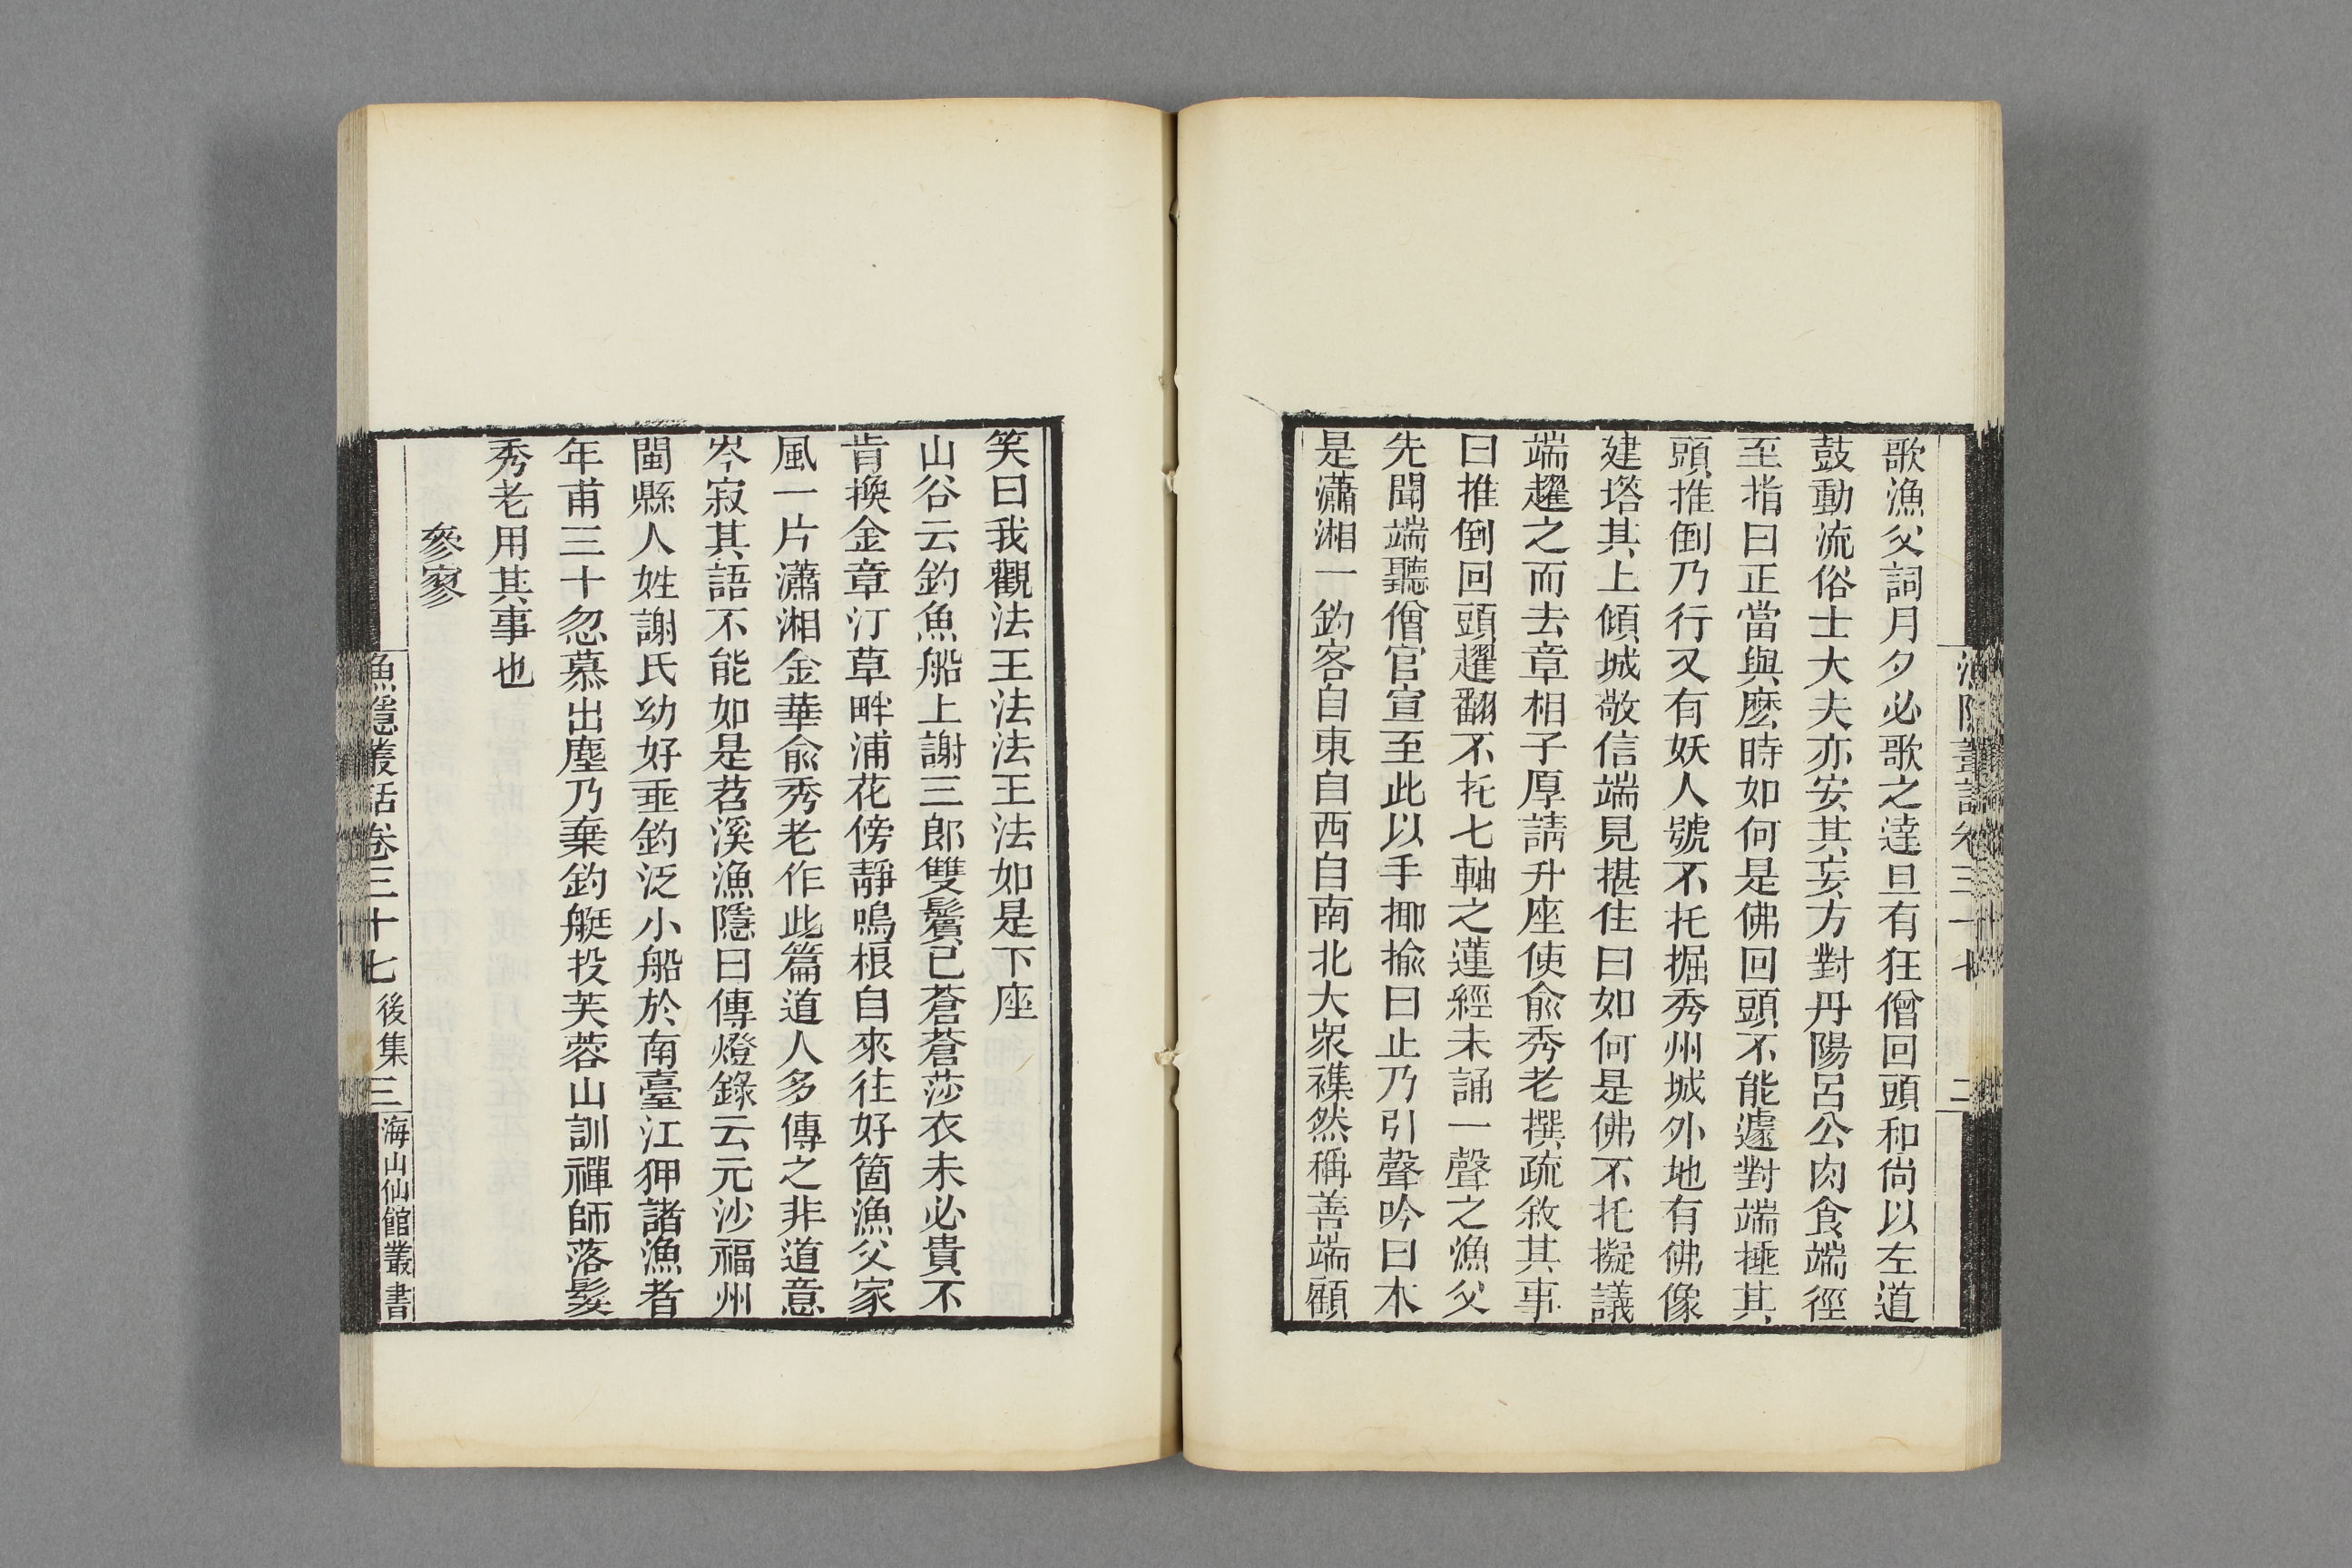 歌漁父詞月夕必歌之達旦有狂僧回頭和尙以左道
鼓動流俗士大夫亦安其妄方對丹陽呂公肉食端徑
至指曰正當與麽時如何是佛回頭不能遽對端捶其
頭推倒乃行又有妖人號不托掘秀州城外地有佛像
建塔其上傾城敬信端見搓住曰如何是佛不托擬議
端趯之而去章相子厚請升座使俞秀老撰疏敘其事
曰推倒回頭趯翻不托七軸之蓮經未誦一聲之漁父
先聞端聽僧官宣至此以手揶揄曰止乃引聲吟曰本
是瀟湘一釣客自東自西自南北大衆襍然稱善端顧
笑曰我觀法王法法王法如是下座
山谷云釣魚船上謝三郎雙鬢已蒼蒼莎衣未必貴不
肯換金章汀草畔浦花傍靜鳴根自來往好箇漁父家
風一片瀟湘金華俞秀老作此篇道人多傳之非道意
岑寂其語不能如是苕溪漁隱曰傳燈錄云元沙福州
閩縣人姓謝氏幼好垂釣泛小船於南臺江狎諸漁者
年甫三十忽慕出塵乃棄釣艇投芙蓉山訓禪師落髮
秀老用其事也
參寥
漁隱叢話卷三十七 後集 三 海山仙館叢書